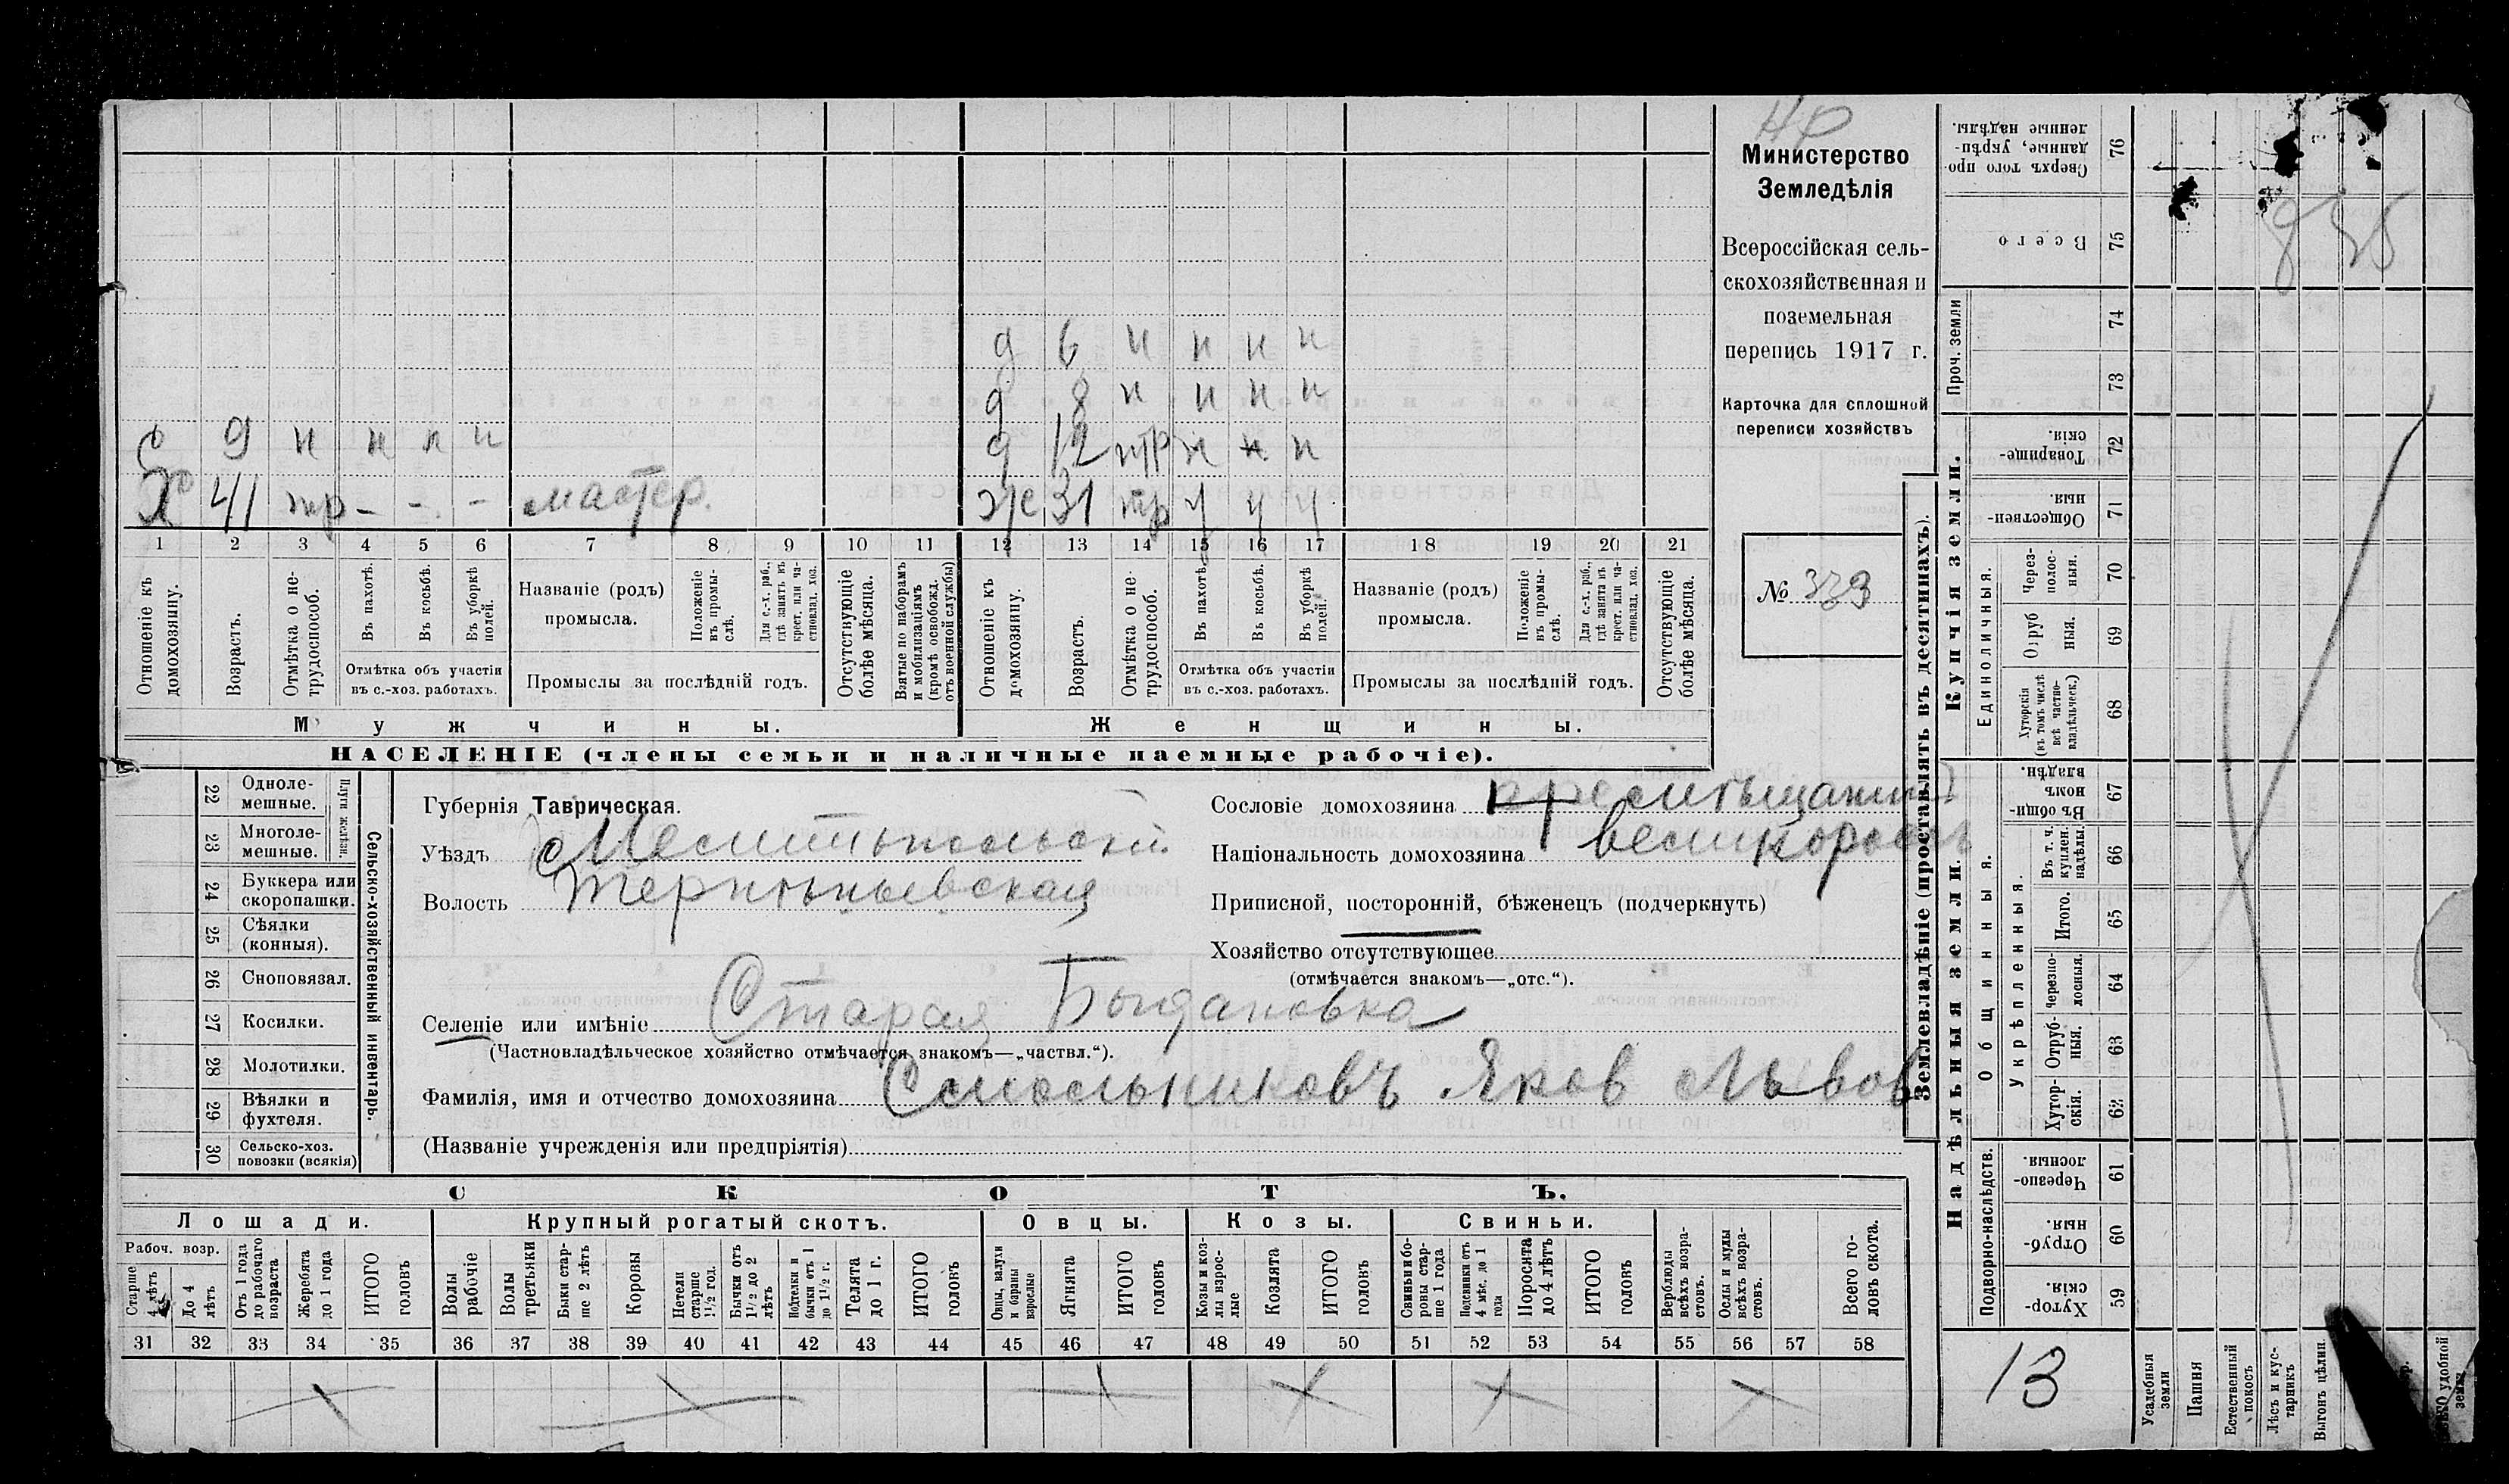 НФ
Министерство
Земледѣлія
Всероссійская сель-
скохозяйственная и
поземельная
перепись 1917 г.
Карточка для сплошной
переписи хозяйствъ
№ 339
д 6 н н н н
д 8 н н н н
с 9 н н н н
д 12 нтр н н н
Хо 41 тр - - - мастер.
Же 31 тр у у у
1 2 3 4 5 6 7 8 9 10 11 12 13 14 15 16 17 18 19 20 21
Отношеніе къ домохозяину.
Возрастъ.
Отмѣтка о не-трудоспособ.
Въ пахотѣ.
Въ косьбѣ.
Въ уборкѣ полей.
Отмѣтка объ участіи
въ с.-хоз. работахъ.
Названіе (родъ)
промысла.
Положеніе въ промы-слѣ.
Для с.-х. раб., гдѣ занятъ въ крест. или ча-стновлад. хоз.
Промыслы за послѣдній годъ.
Отсутствующіе болѣе мѣсяца.
Взятые по наборамъ и мобилизаціямъ (кромѣ освобожд. отъ военной службы)
Отношеніе къ домохозяину.
Возрастъ.
Отмѣтка о не-трудоспособ.
Въ пахотѣ.
Въ косьбѣ.
Въ уборкѣ полей.
Отмѣтка объ участіи
въ с.-хоз. работахъ.
Названіе (родъ)
промысла.
Положеніе въ промы-слѣ.
Для с.-х. раб., гдѣ занята въ крест. или ча-стновлад. хоз.
Промыслы за послѣдній годъ.
Отсутствующіе болѣе мѣсяца.
Мужчины.
Женщины.
НАСЕЛЕНІЕ (члены семьи и наличные наемные рабочіе).
22 Одноле-мешные.
23 Многоле-мешные.
Плуги желѣзн.
24 Буккера или скоропашки.
25 Сѣялки (конныя).
26 Сноповязал.
27 Косилки.
28 Молотилки.
29 Вѣялки и фухтеля.
30 Сельско-хоз. повозки (всякія)
Сельско-хозяйственный инвентарь.
Губернія Таврическая.
Уѣздъ Мелитопольскій
Волость Терпѣньевская
Сословіе домохозяина
Національность домохозяина великороссъ
Приписной, посторонній, бѣженецъ (подчеркнуть)
Хозяйство отсутствующее
(отмѣчается знакомъ—„отс.“).
Селеніе или имѣніе Старая Богдановка
(Частновладѣльческое хозяйство отмѣчается знакомъ—„частвл.“).
Фамилія, имя и отчество домохозяина Смольниковъ Яков Львов
(Названіе учрежденія или предпріятія)
СКОТЪ.
Лошади.
Крупный рогатый скотъ.
Овцы.
Козы.
Свиньи.
Рабоч. возр.
Старше 4 лѣтъ
До 4 лѣтъ
Отъ 1 года до рабочаго возраста
Жеребята до 1 года
ИТОГО головъ
Волы рабочіе
Волы третьяки
Быки стар-ше 2 лѣтъ
Коровы
Нетели старше 1½ год.
Бычки отъ 1½ до 2 лѣтъ
Нетелки и бычки отъ 1 до 1½ г.
Телята до 1 г.
ИТОГО головъ
Овцы, валухи и бараны взрослые
Ягнята
ИТОГО головъ
Козы и коз-лы взрос-лые
Козлята
ИТОГО головъ
Свиньи и бо-ровы стар-ше 1 года
Подсвинки отъ 4 мѣс. до 1 года
Поросята до 4 лѣтъ
ИТОГО головъ
Верблюды всѣхъ возра-стовъ.
Ослы и мулы всѣхъ возра-стовъ.
Всего го-ловъ скота.
31 32 33 34 35 36 37 38 39 40 41 42 43 44 45 46 47 48 49 50 51 52 53 54 55 56 57 58
Землевладѣніе (проставлять въ десятинахъ).
Сверхъ того про-данные, укрѣп-ленные надѣлы. 76
Всего 75
Проч. земли
74
73
Купчія земли.
Товарище-скія. 72
Обществен-ныя. 71
Единоличныя.
Через-полос-ныя. 70
Отруб ныя. 69
Хуторскія (въ томъ числѣ всѣ частно-владѣльческ.) 68
Надѣльныя земли.
Общинныя.
Въ общи-номъ владѣн. 67
Укрѣпленныя.
Въ т. ч. куплен. надѣлы. 66
Итого. 65
Черезпо-лосныя. 64
Отруб-ныя. 63
Хутор-скія. 62
Подворно-наслѣдств.
Черезпо-лосныя. 61
Отруб-ныя. 60
Хутор-скія. 59
13
Усадебныя земли
Пашня
Естественный покосъ
Лѣсъ и кус-тарникъ
Выгонъ цѣлин.